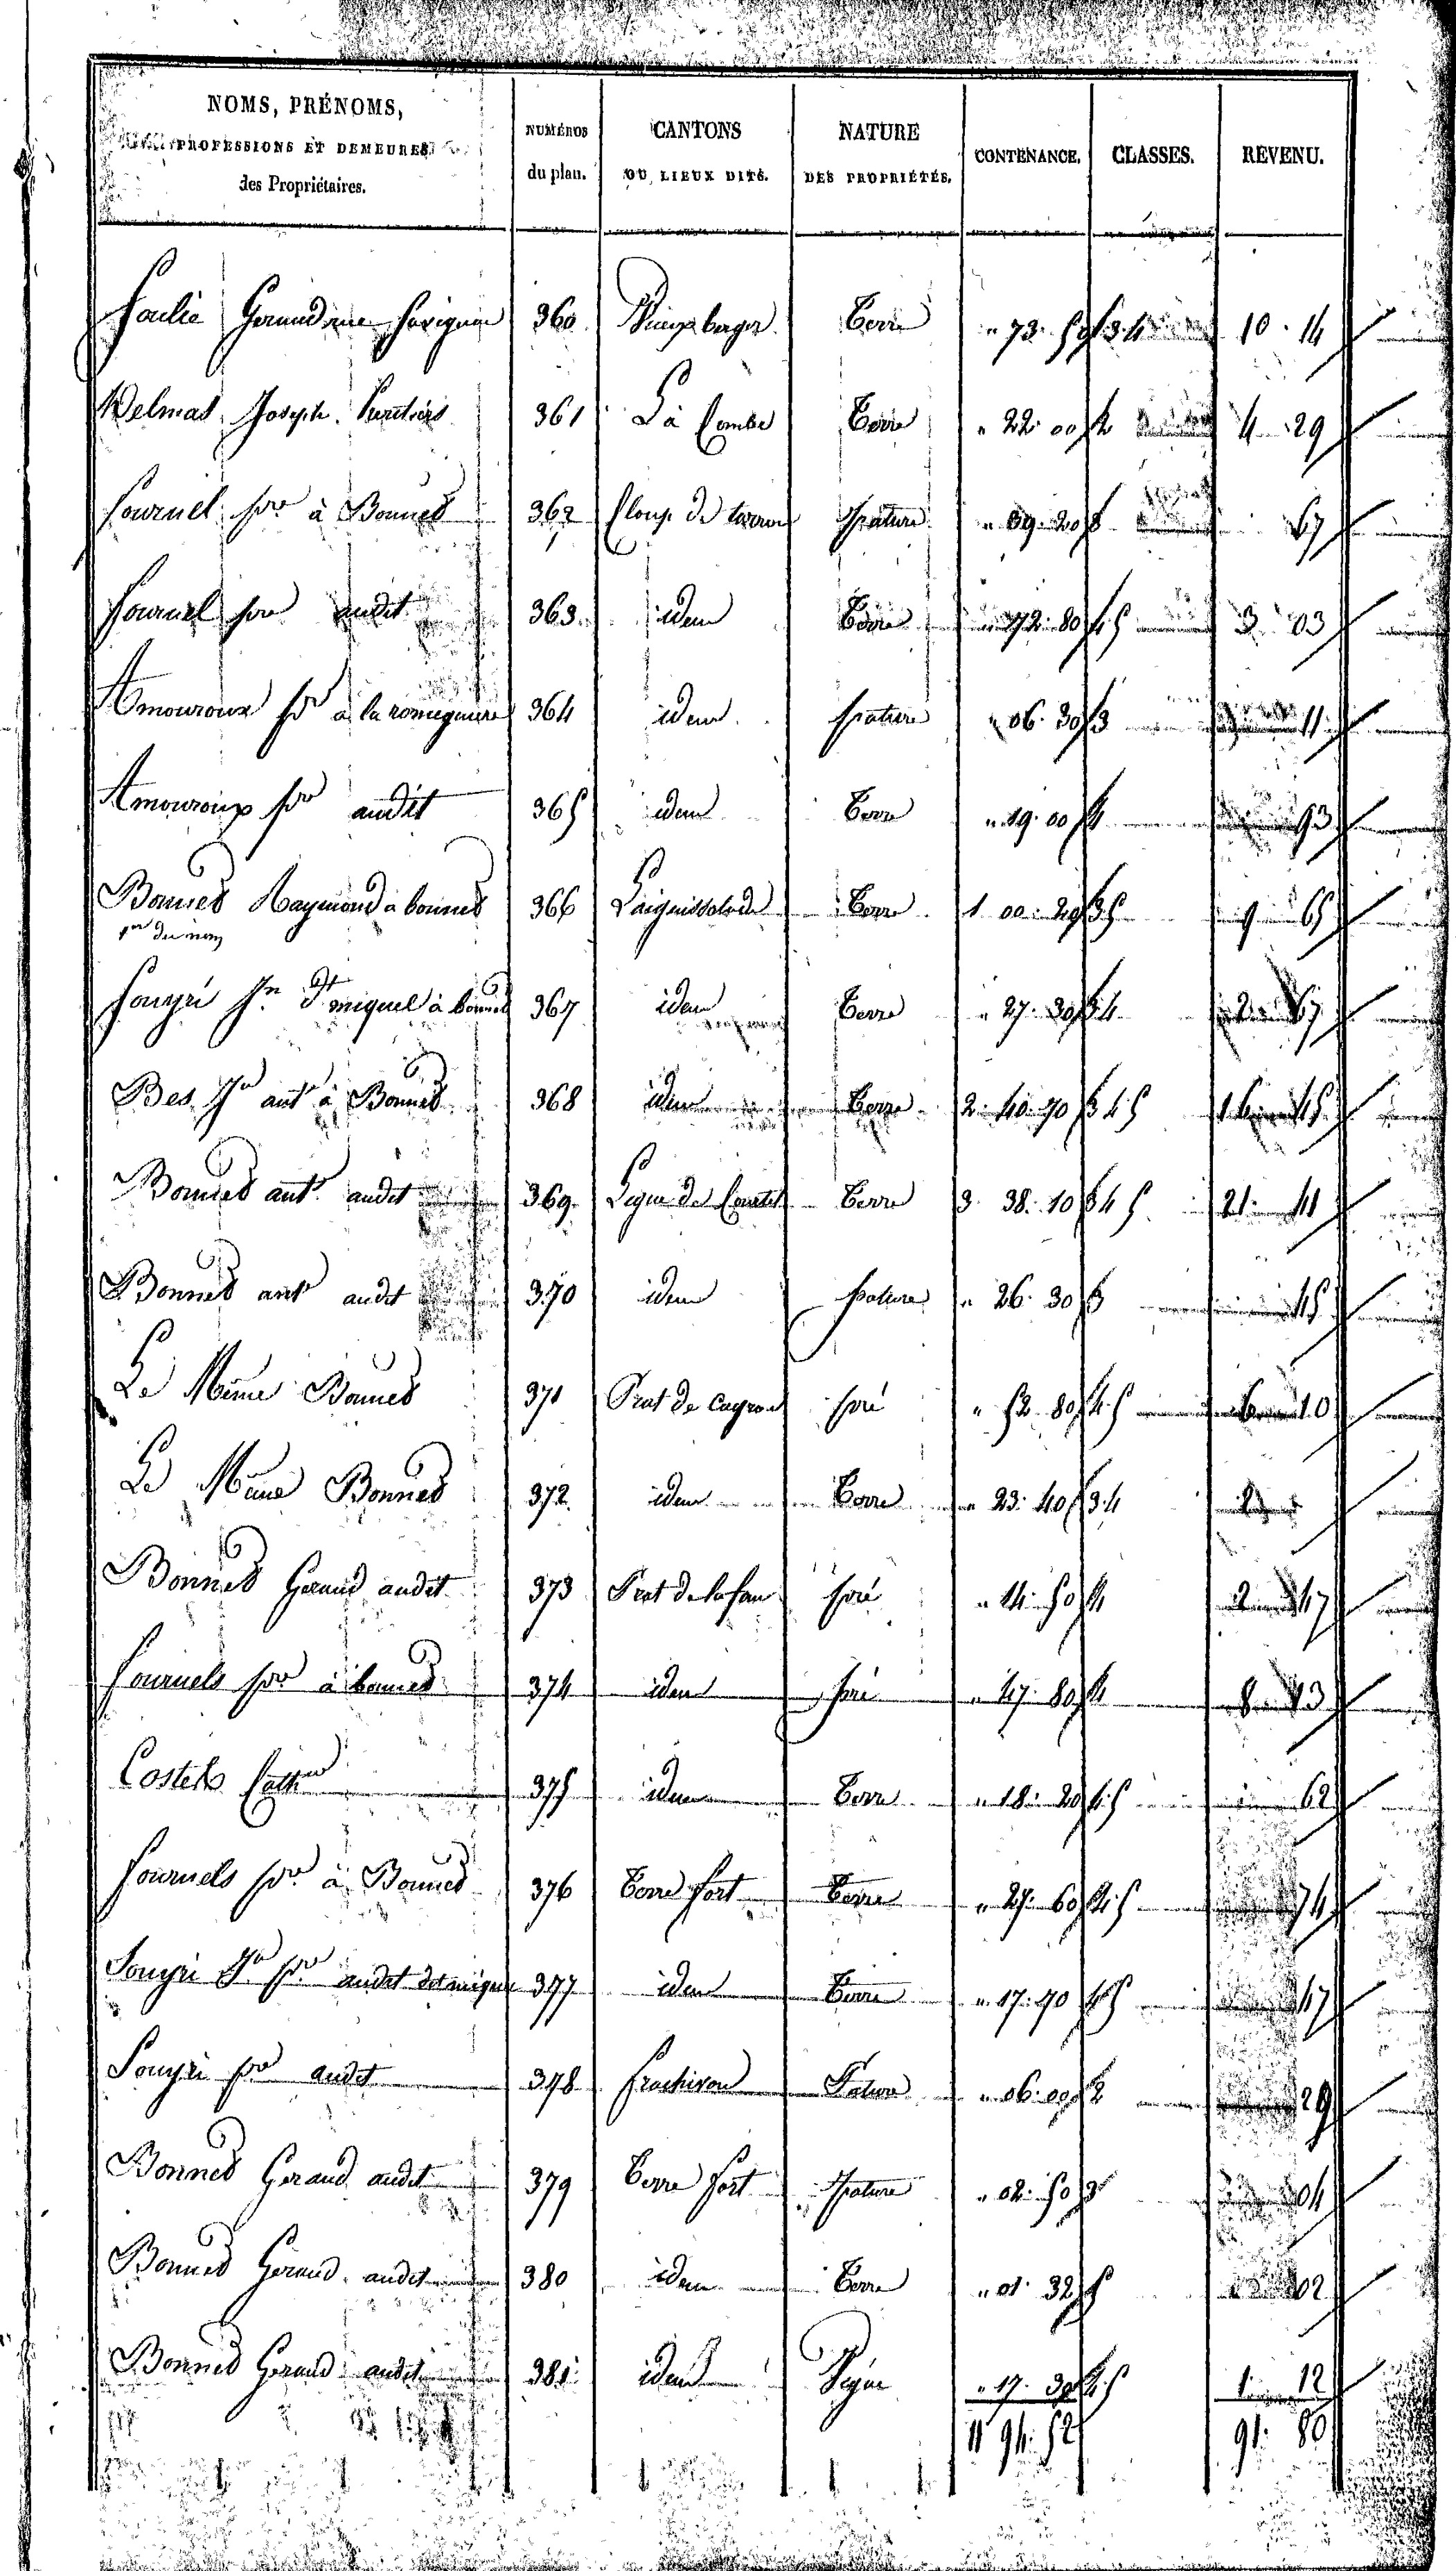 NOMS, PRÉNOMS,
PROFESSIONS ET DEMEURES
des Propriétaires.
NUMÉROS
du plan.
CANTONS
OU LIEUX DITS.
NATURE
DES PROPRIÉTÉS.
CONTENANCE.
CLASSES.
REVENU.
360 Terre " 73. 50 3.4 10. 14
Delmas Joseph 361 La Combe Terre " 22. 00 2 4 29
fournel pre à Bonnes 362 pature " 39. 20 67
fournel pre audit 363 idem Terre " 72. 80 4 5 3 03
Amouroux pre à la romiguiere 364 idem pature " 06. 30 3 11
Amouroux pre audit 365 idem Terre " 19. 00 4 93
Bonnes Raymond à bonnes 366 Terre 1 00. 20 3 5 9 65
1er du nom
Souyri Jn dt miquel à bonnes 367 idem Terre " 27. 30 3 4 2 67
Bes Jn ant à Bonnes 368 idem Terre 2. 40. 70 3 4 5 16 45
Bonnes ant. audit 369 Terre 3. 38. 10 3 4 5 21. 41
Bonnes ant audit 370 idem pature " 26. 30 3 45
Le Même Bonnes 371 Prat de Cayrou pré " 52 80 4. 5 6 10
Le Même Bonnes 372 idem Terre " 23. 40 3 4 2
Bonnes Geraud audit 373 Prat de lafon pré " 14. 50 4 2 47
fournels pre à bonnes 374 idem pré " 47. 80 4 8 13
Costes Cathne 375 idem Terre " 18. 20 4. 5 62
fournels pre à Bonnes 376 Terre fort Terre " 27. 60 4. 5 74
Souyri Jn pre audit dt miquel 377 idem Terre " 17. 70 4 5 47
Souyri pre audit 378 Pature " 06. 00 2 29
Bonnes Geraud audit 379 Terre fort pature " 02. 50 3 04
Bonnes Geraud audit 380 idem Terre " 01. 32 5 02
Bonnes Geraud audit 381 idem Vigne " 17. 30 4. 5 1. 12
11 94. 52
91. 80